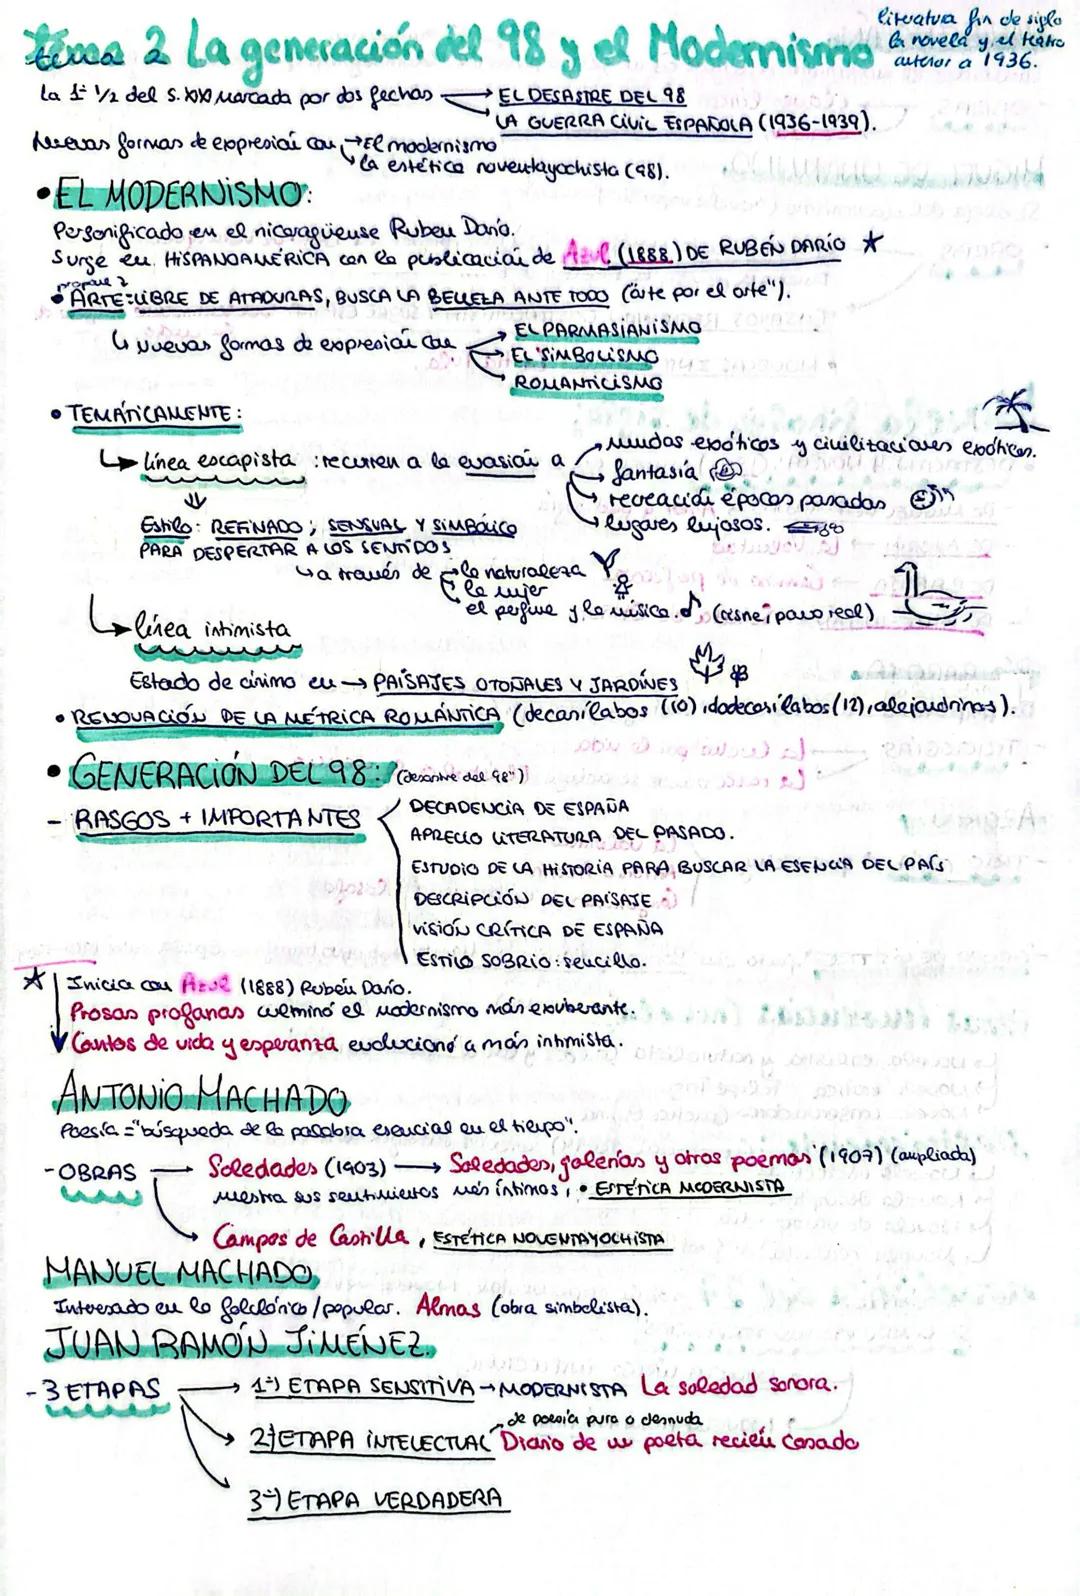 literatura fin de siglo
la novela y el teatro
anterior a 1936.
tema 2 La generación del 98 y el Modernismo
La 1ª 1/2 del S. XX Marcada por dos fechas → EL DESASTRE DEL 98
LA GUERRA CIVIL ESPAÑOLA (1936-1939).
Nuevas formas de expresión con → El modernismo
la estética noventayochista (98).
• EL MODERNISMO:
Personificado en el nicaragüense Ruben Darío.
Surge en HISPANOAMÉRICA con la publicación de Azul (1888) DE RUBÉN DARÍO ★
propone
• ARTE: LIBRE DE ATADURAS, BUSCA LA BELLEZA ANTE TODO (arte por el arte").
↳ Nuevas formas de expresión con → EL PARMASIANISMO
→ EL SIMBOLISMO
→ ROMANTICISMO
• TEMÁTICAMENTE:
↳ línea escapista : recurren a la evasión a → Mundos exóticos y civilizaciones exóticas.
→ fantasía
→ recreación épocas pasadas
→ lugares lujosos.
Estilo: REFINADO, SENSUAL Y SIMBÓLICO
PARA DESPERTAR A LOS SENTIDOS
↳ a través de → la naturaleza
la mujer
el perfume y la música. (cisne, pavo real)
↳ línea intimista
Estado de ánimo en → PAISAJES OTOÑALES Y JARDINES
• RENOVACIÓN DE LA MÉTRICA ROMÁNTICA (decasílabos (10), dodecasílabos (12), alejandrinos).
• GENERACIÓN DEL 98: (desastre del 98")
- RASGOS + IMPORTANTES
DECADENCIA DE ESPAÑA
APRECIO LITERATURA DEL PASADO.
ESTUDIO DE LA HISTORIA PARA BUSCAR LA ESENCIA DEL PAÍS
DESCRIPCIÓN DEL PAISAJE
VISIÓN CRÍTICA DE ESPAÑA
ESTILO SOBRIO: sencillo.
★ Inicia con Azul (1888) Rubén Darío.
Prosas profanas culminó el modernismo más exuberante.
Cantos de vida y esperanza evolucionó a más intimista.
ANTONIO MACHADO
Poesía = "búsqueda de la palabra esencial en el tiempo".
- OBRAS → Soledades (1903) → Soledades, galerías y otros poemas (1907) (ampliada)
muestra sus sentimientos más íntimos, • ESTÉTICA MODERNISTA
→ Campos de Castilla, ESTÉTICA NOVENTAYOCHISTA
MANUEL MACHADO
Interesado en lo folclórico/popular. Almas (obra simbolista).
JUAN RAMÓN JIMÉNEZ.
- 3 ETAPAS → 1ª) ETAPA SENSITIVA → MODERNISTA La soledad sonora.
de poesía pura o desnuda
→ 2ª) ETAPA INTELECTUAL Diario de un poeta recién casado
→ 3ª) ETAPA VERDADERA